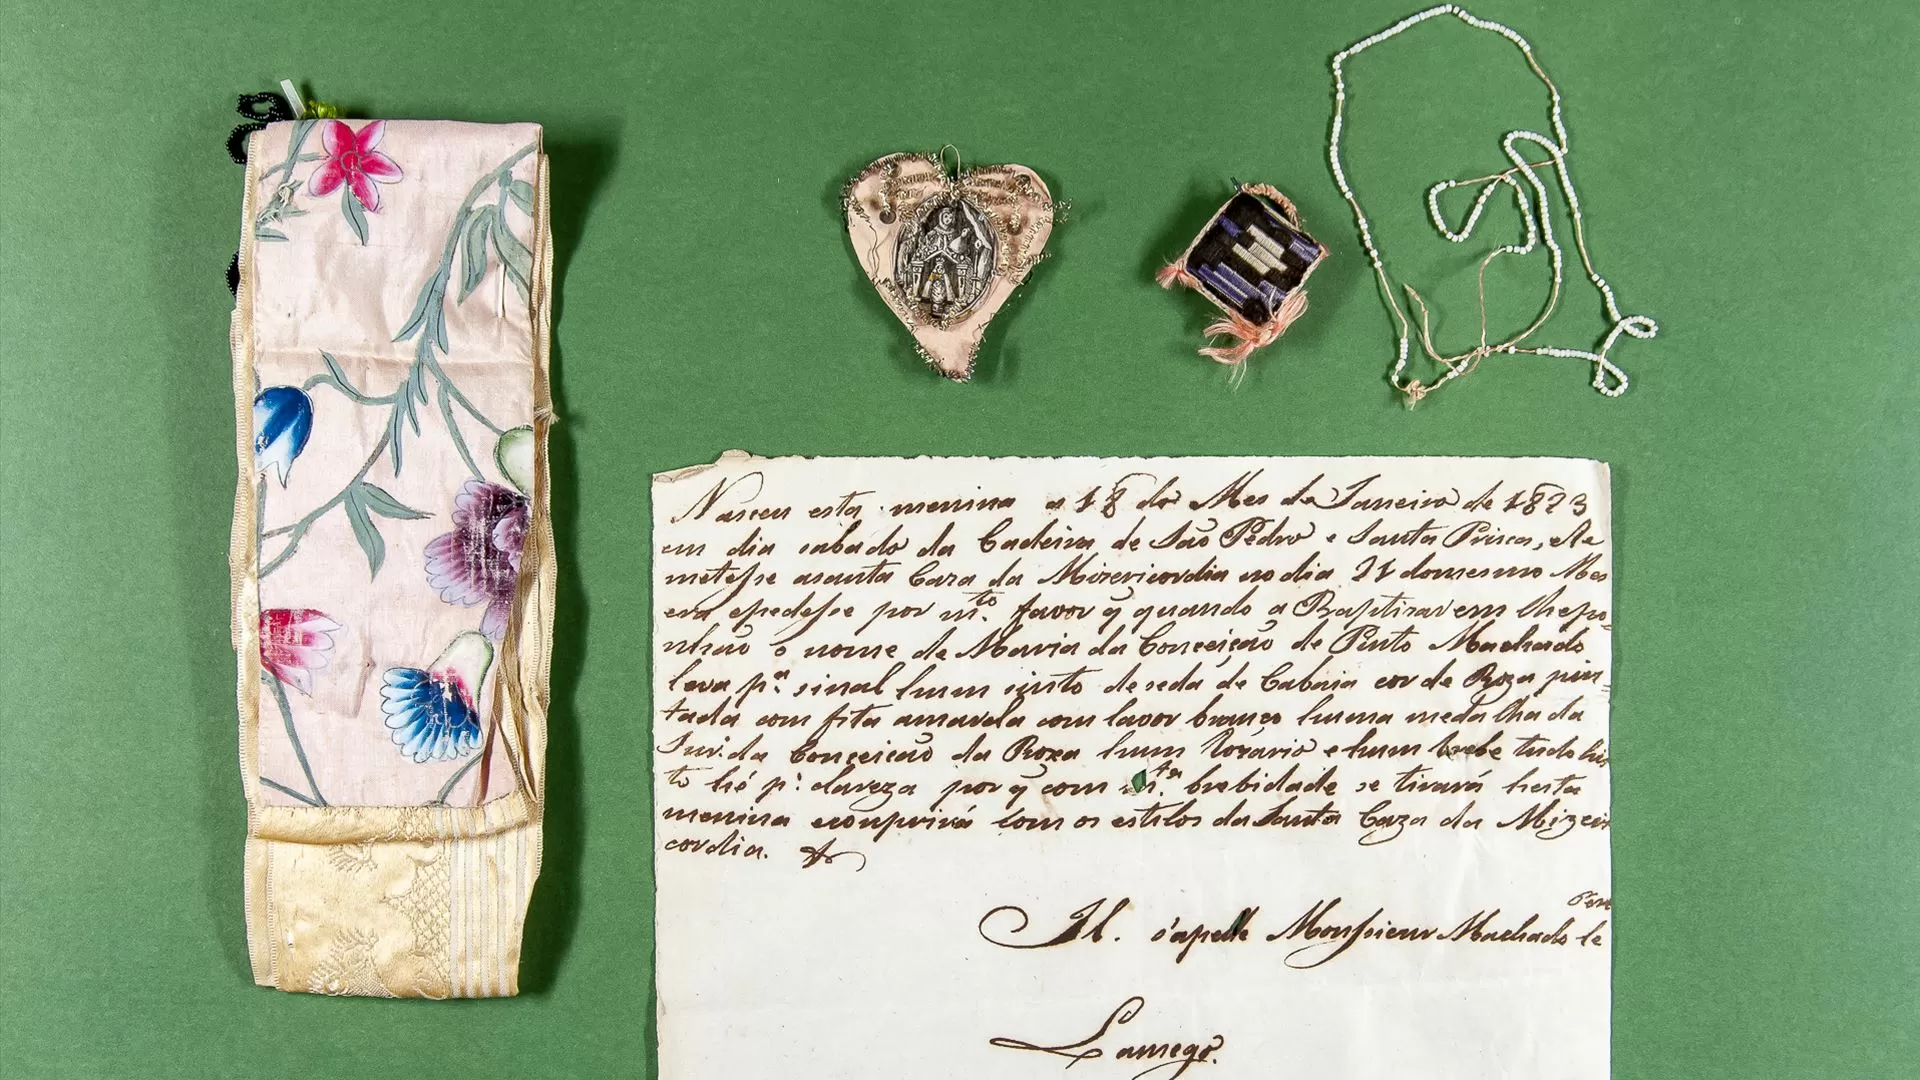 Nasceu esta menina a 18 do Mes de Janeiro de 1823
em dia sabado da Cadeira de São Pedro e Santa Prisca, e
metesse asanta Caza da Mizericordia no dia 21 domesmo Mes
era epedesse por m.to favor q̃ quando a Baptizarem lhepo=
nhão o nome de Maria da Conceição de Pinto Machado
leva p.a sinal hum sinto de seda de Cabaia cor de Roza pin=
tada com fita amarela com lavor branco huma medalha da
Snr.da Conceição da Roxa hum Rozario e hum brebe tudo his
to hé p.a clareza por q̃ com m.ta brebidade se tirará hesta
menina ecomprirá com os estilos da Santa Caza da Mizeri
cordia.
Il. s'apelle Monsieur Machado le
Pere
Lamego.